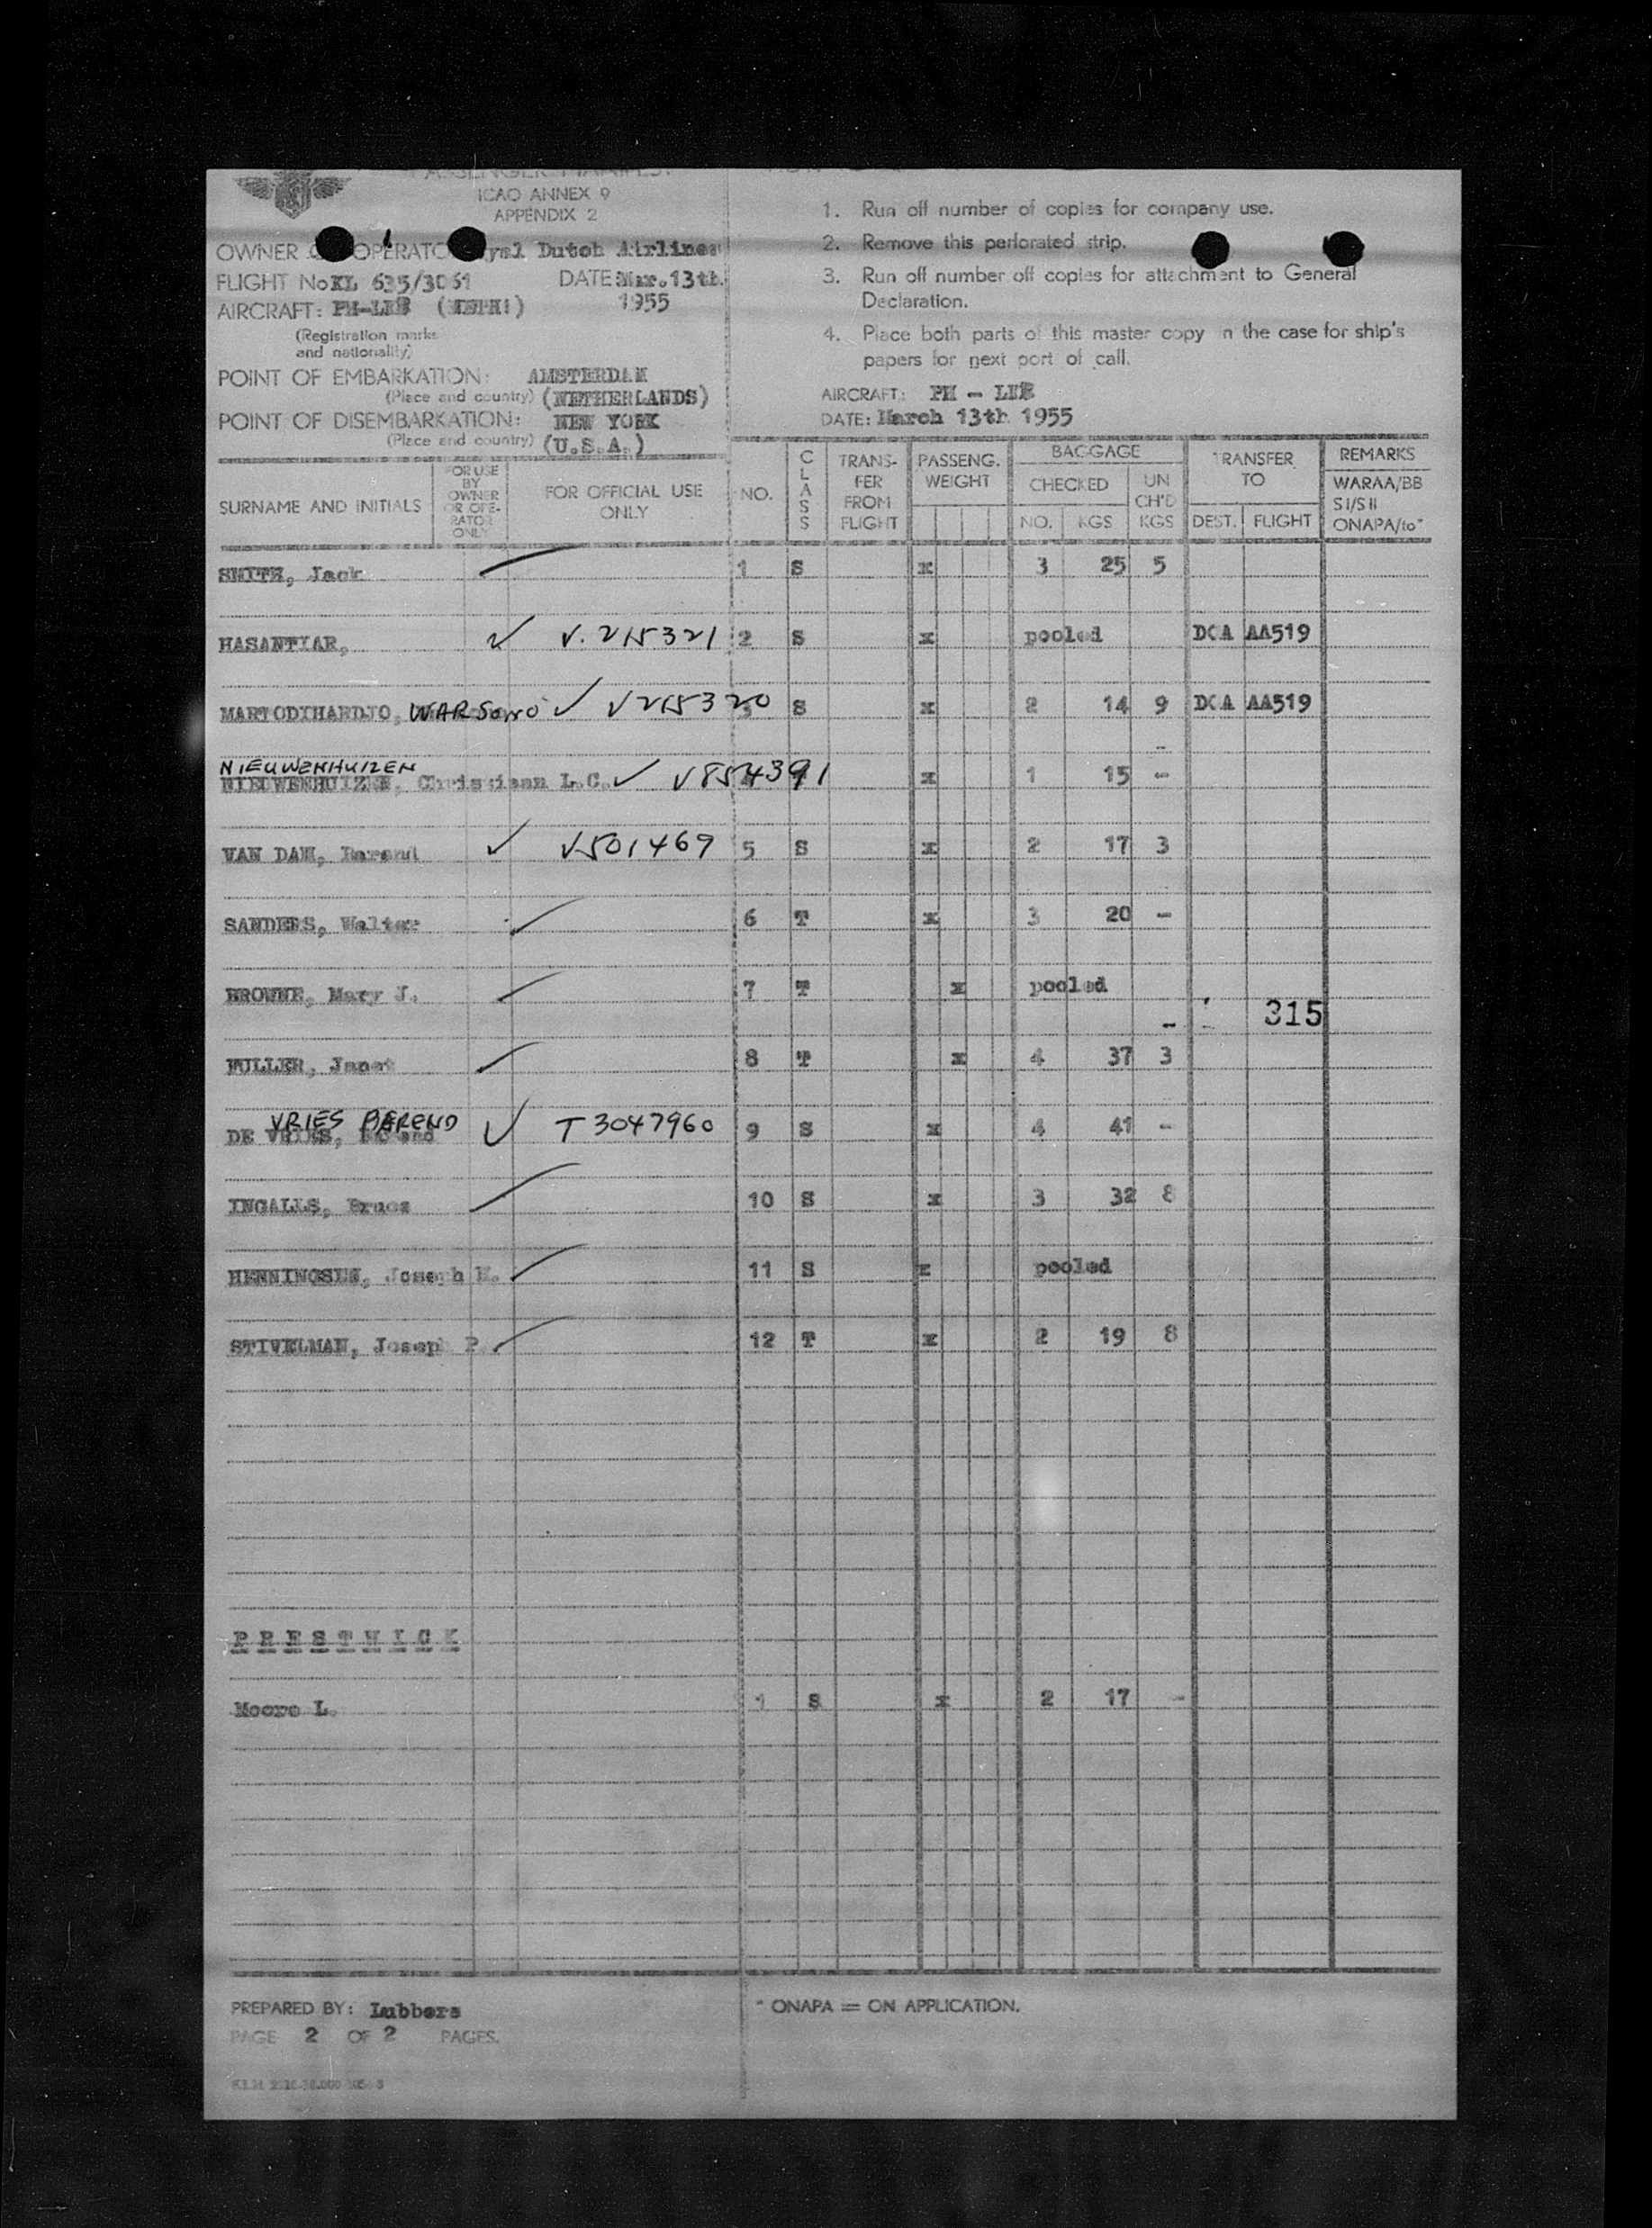 ICAO ANNEX 9
APPENDIX 2
OWNER OPERATO yal Dutch Airlines
FLIGHT No KL 635/3061 DATE Mar.13th.
1955
AIRCRAFT: PH-LKB
(Registration marks
and nationality)
POINT OF EMBARKATION: AMSTERDAM
(Place and country) (NETHERLANDS)
POINT OF DISEMBARKATION: NEW YORK
(Place and country) (U.S.A.)
1. Run off number of copies for company use.
2. Remove this perforated strip.
3. Run off number off copies for attachment to General
Declaration.
4. Place both parts of this master copy in the case for ship's
papers for next port of call.
AIRCRAFT: PH - LKB
DATE: March 13th 1955
SURNAME AND INITIALS
FOR USE
BY
OWNER
OR OPE-
RATOR
ONLY
FOR OFFICIAL USE
ONLY
NO.
CLASS
TRANS-
FER
FROM
FLIGHT
PASSENG.
WEIGHT
BAGGAGE
CHECKED
NO. KGS
UN
CH'D
KGS
TRANSFER
TO
DEST. FLIGHT
REMARKS
WARAA/BB
SI/SII
ONAPA/to"
SMITH, Jack 1 S x 3 25 5
HASANTIAR, V. 215321 2 S x pooled DCA AA519
MARTODIHARDJO, WARSONO V215320 3 S x 2 14 9 DCA AA519
NIEUWENHUIZEN
NIEUWENHUIZEN, Christiaan L.C. V854391 x 1 15 -
VAN DAM, Barend V501469 5 S x 2 17 3
SANDERS, Walter 6 T x 3 20 -
BROWNE, Mary J. 7 T x pooled
315
FULLER, Janet 8 T x 4 37 3
VRIES BAREND
DE VRIES, Barend T3047960 9 S x 4 41 -
INGALLS, Bruce 10 S x 3 32 8
HENNINGSEN, Joseph E. 11 S x pooled
STIVELMAN, Joseph P. 12 T x 2 19 8
PRESTWICK
Moore L. 1 S x 2 17 -
PREPARED BY: Lubbers
PAGE 2 OF 2 PAGES.
" ONAPA = ON APPLICATION.